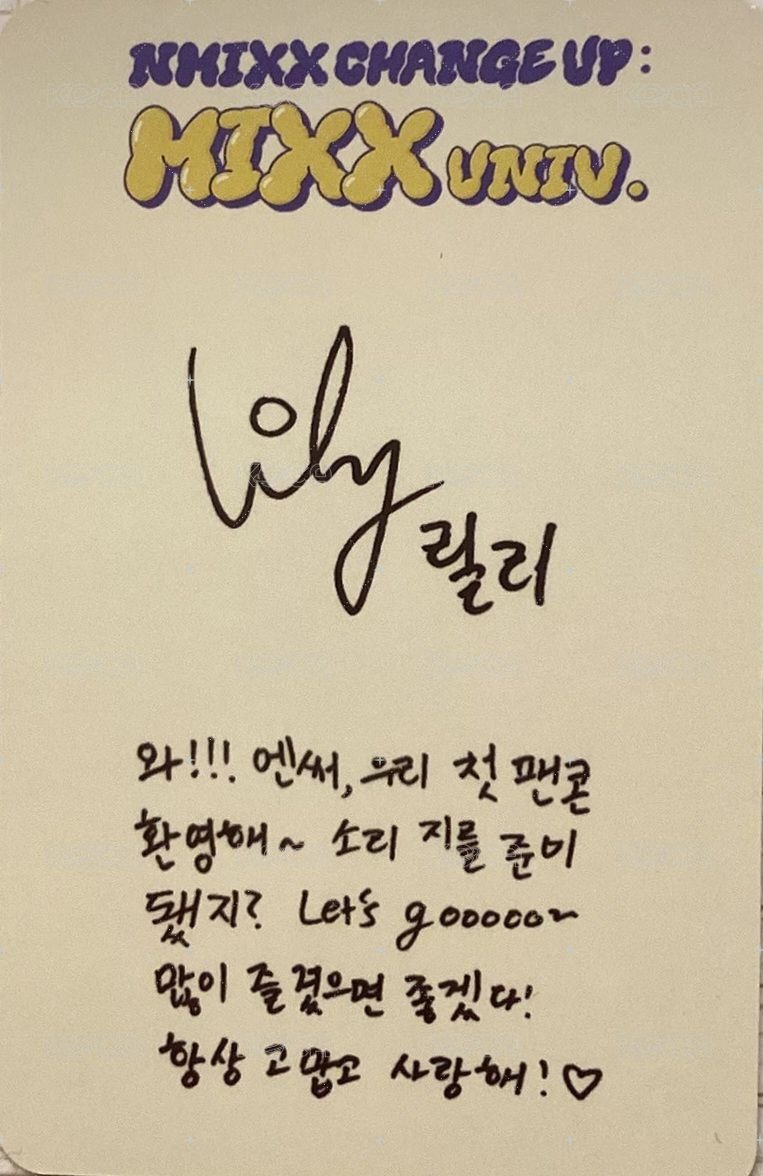 NMIXX CHANGE UP:
MIXX UNIV.
Lily
릴리
와!!! 엔써, 우리 첫 팬콘
환영해~ 소리 지를 준비
됐지? Let's gooooo~
많이 즐겼으면 좋겠다!
항상 고맙고 사랑해!♡